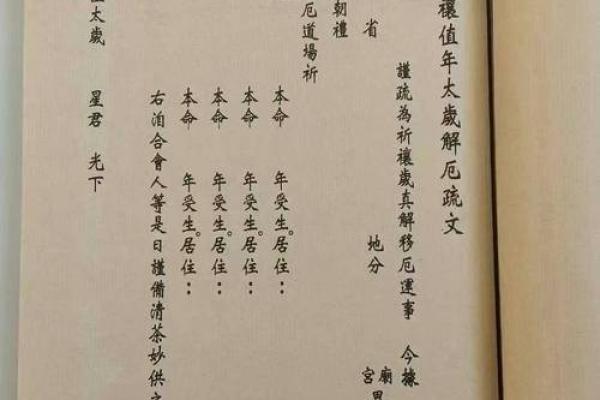 禳值年太歲解厄疏文
謹疏為祈禳歲真解移厄運事 今據
省 地分 廟
宮
朝禮
厄道場祈
本命 年受生。居住：
本命 年受生。居住：
本命 年受生。居住：
本命 年受生。居住：
右洎合會人等是日謹備清茶妙供之
太歲 星君 光下